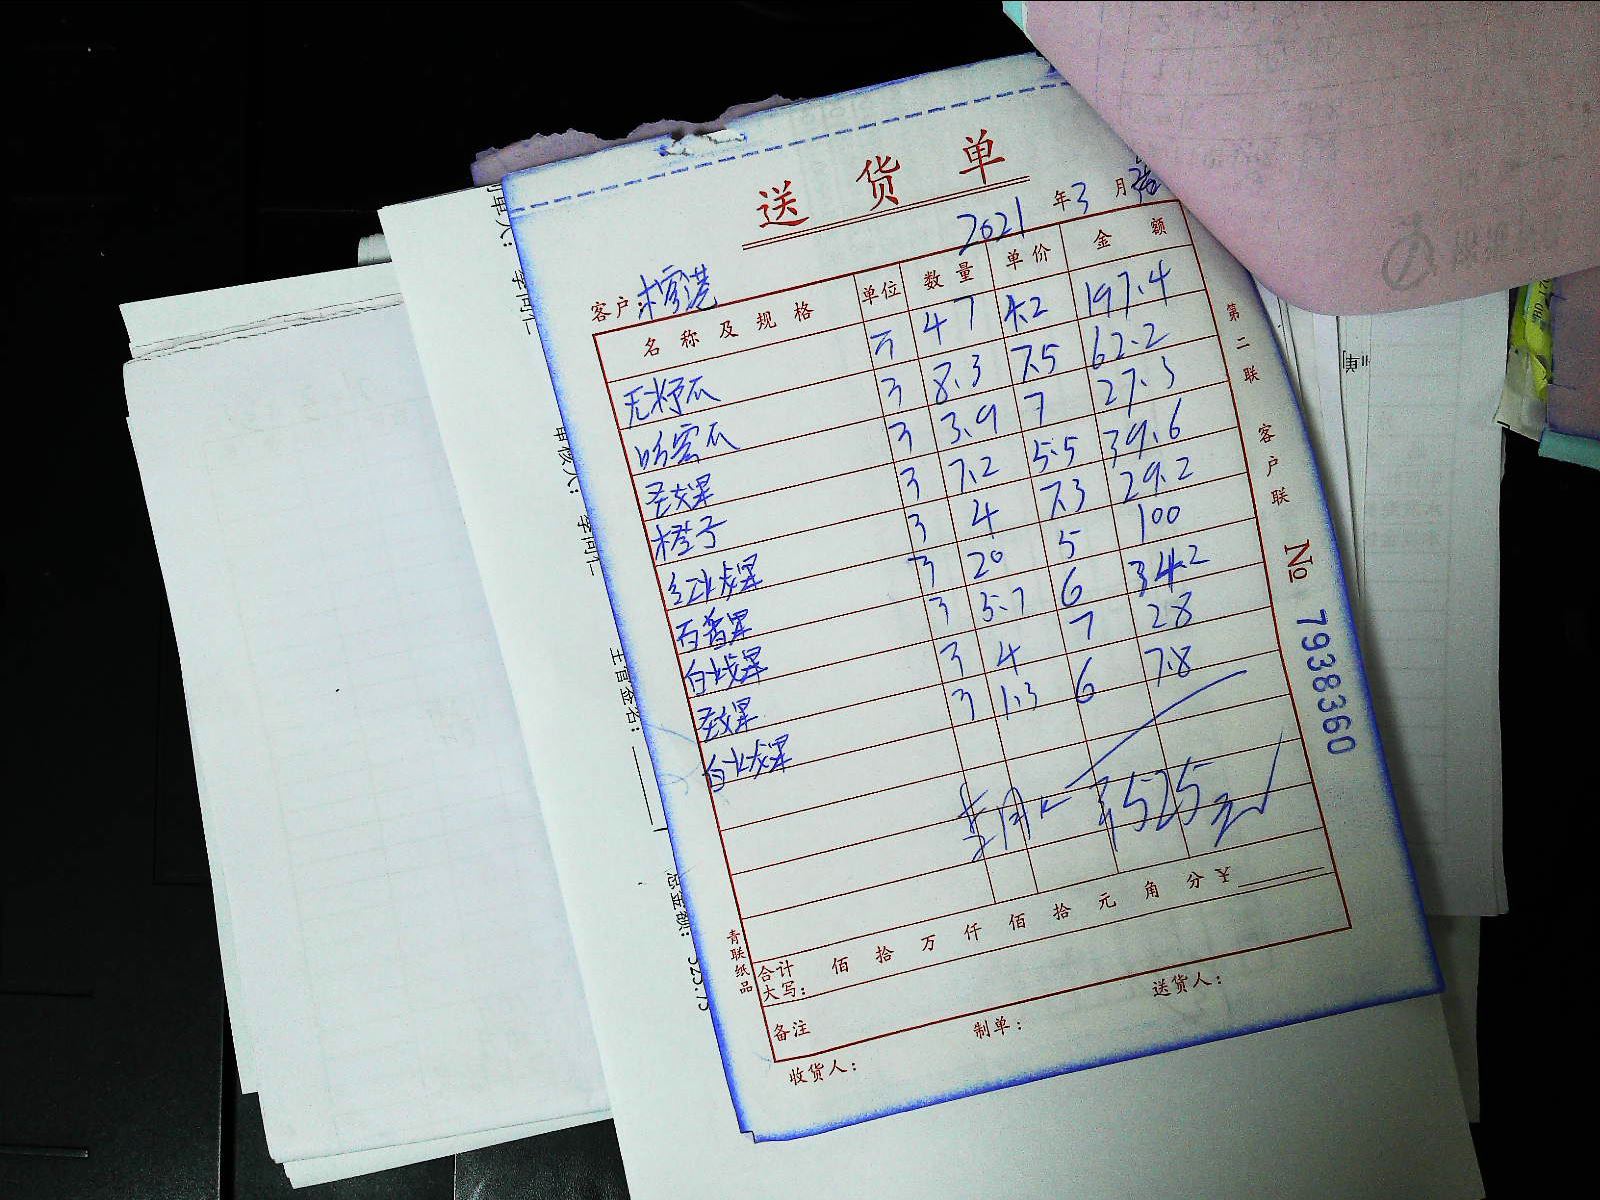 送货单
2021年3月
客户:
名称及规格 单位 数量 单价 金额
无籽瓜 斤 47 4.2 197.4
哈密瓜 3 8.3 7.5 62.2
圣女果 3 3.9 7 27.3
橙子 3 7.2 5.5 39.6
红火龙果 3 4 7.3 29.2
百香果 3 20 5 100
白火龙果 3 5.7 6 34.2
圣女果 3 4 7 28
白火龙果 3 1.3 6 7.8
¥525元
合计
大写: 佰 拾 万 仟 佰 拾 元 角 分 ¥
备注
收货人: 制单: 送货人:
青联纸品
第二联 客户联
№ 7938360
审核人: 李同仁
主管签名:
总金额: